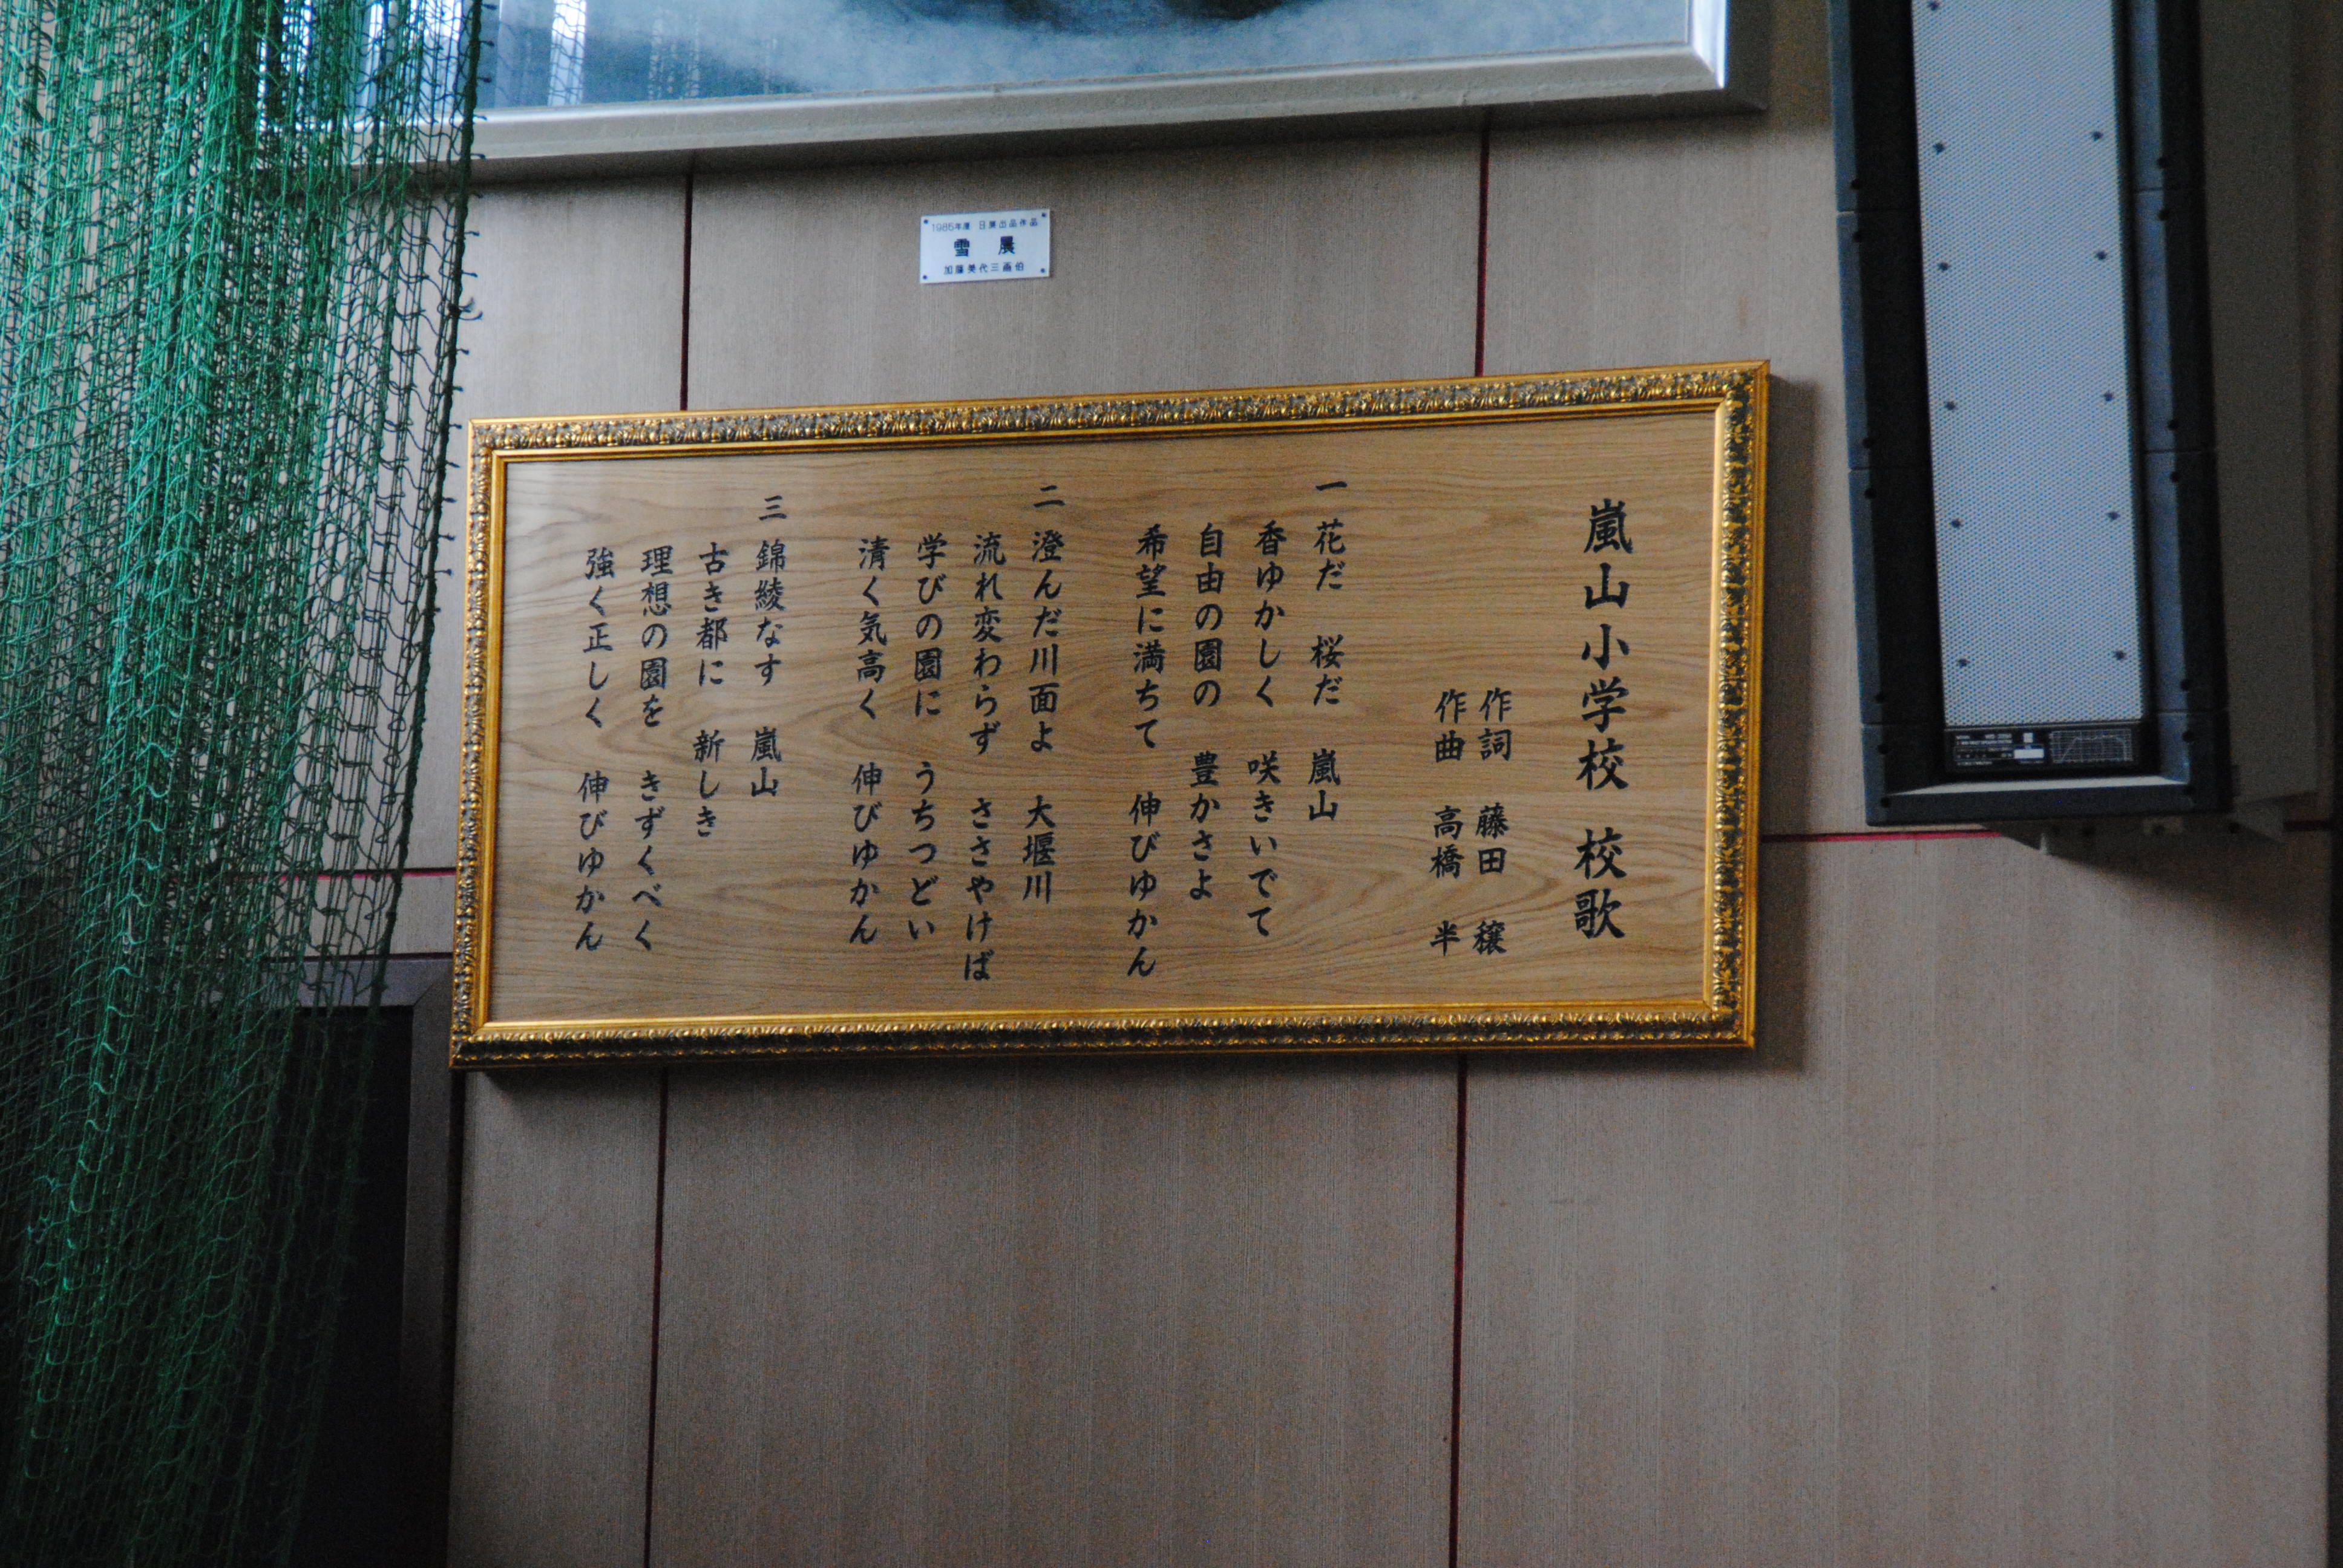 1985年度 日展出品作品
雪 晨
加藤美代三画伯
嵐山小学校 校歌
作詞 藤田 穣
作曲 高橋 半
一 花だ 桜だ 嵐山
香ゆかしく 咲きいでて
自由の園の 豊かさよ
希望に満ちて 伸びゆかん
二 澄んだ川面よ 大堰川
流れ変わらず ささやけば
学びの園に うちつどい
清く気高く 伸びゆかん
三 錦綾なす 嵐山
古き都に 新しき
理想の園を きずくべく
強く正しく 伸びゆかん